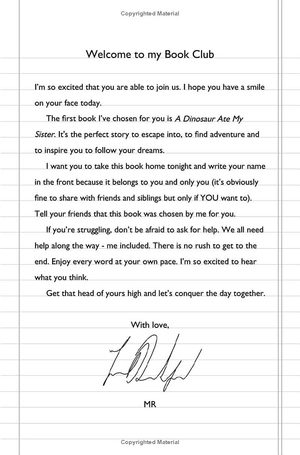 Copyrighted Material
Welcome to my Book Club
I'm so excited that you are able to join us. I hope you have a smile
on your face today.
The first book I've chosen for you is A Dinosaur Ate My
Sister. It's the perfect story to escape into, to find adventure and
to inspire you to follow your dreams.
I want you to take this book home tonight and write your name
in the front because it belongs to you and only you (it's obviously
fine to share with friends and siblings but only if YOU want to).
Tell your friends that this book was chosen by me for you.
If you're struggling, don't be afraid to ask for help. We all need
help along the way - me included. There is no rush to get to the
end. Enjoy every word at your own pace. I'm so excited to hear
what you think.
Get that head of yours high and let's conquer the day together.
With love,
MR
Copyrighted Material